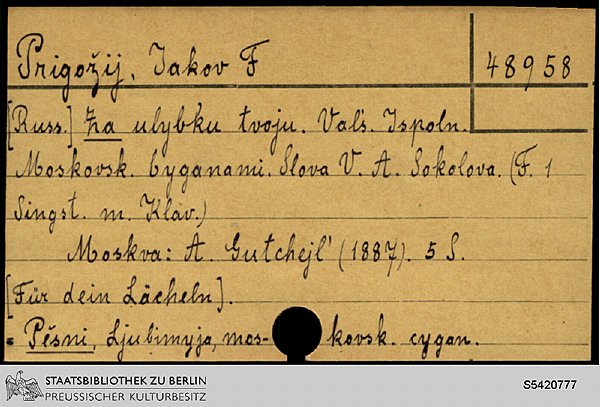 Prigožij, Jakov F
48958
[Russ.] Za ulybku tvoju. Val's. Ispoln.
Moskovsk. cyganami. Slova V. A. Sokolova. (F. 1
Singst. m. Klav.)
Moskva: A. Gutchejl' (1887). 5 S.
[Für dein Lächeln].
= Pěsni, Ljubimyja, mos- kovsk. cygan.
STAATSBIBLIOTHEK ZU BERLIN
PREUSSISCHER KULTURBESITZ
S5420777